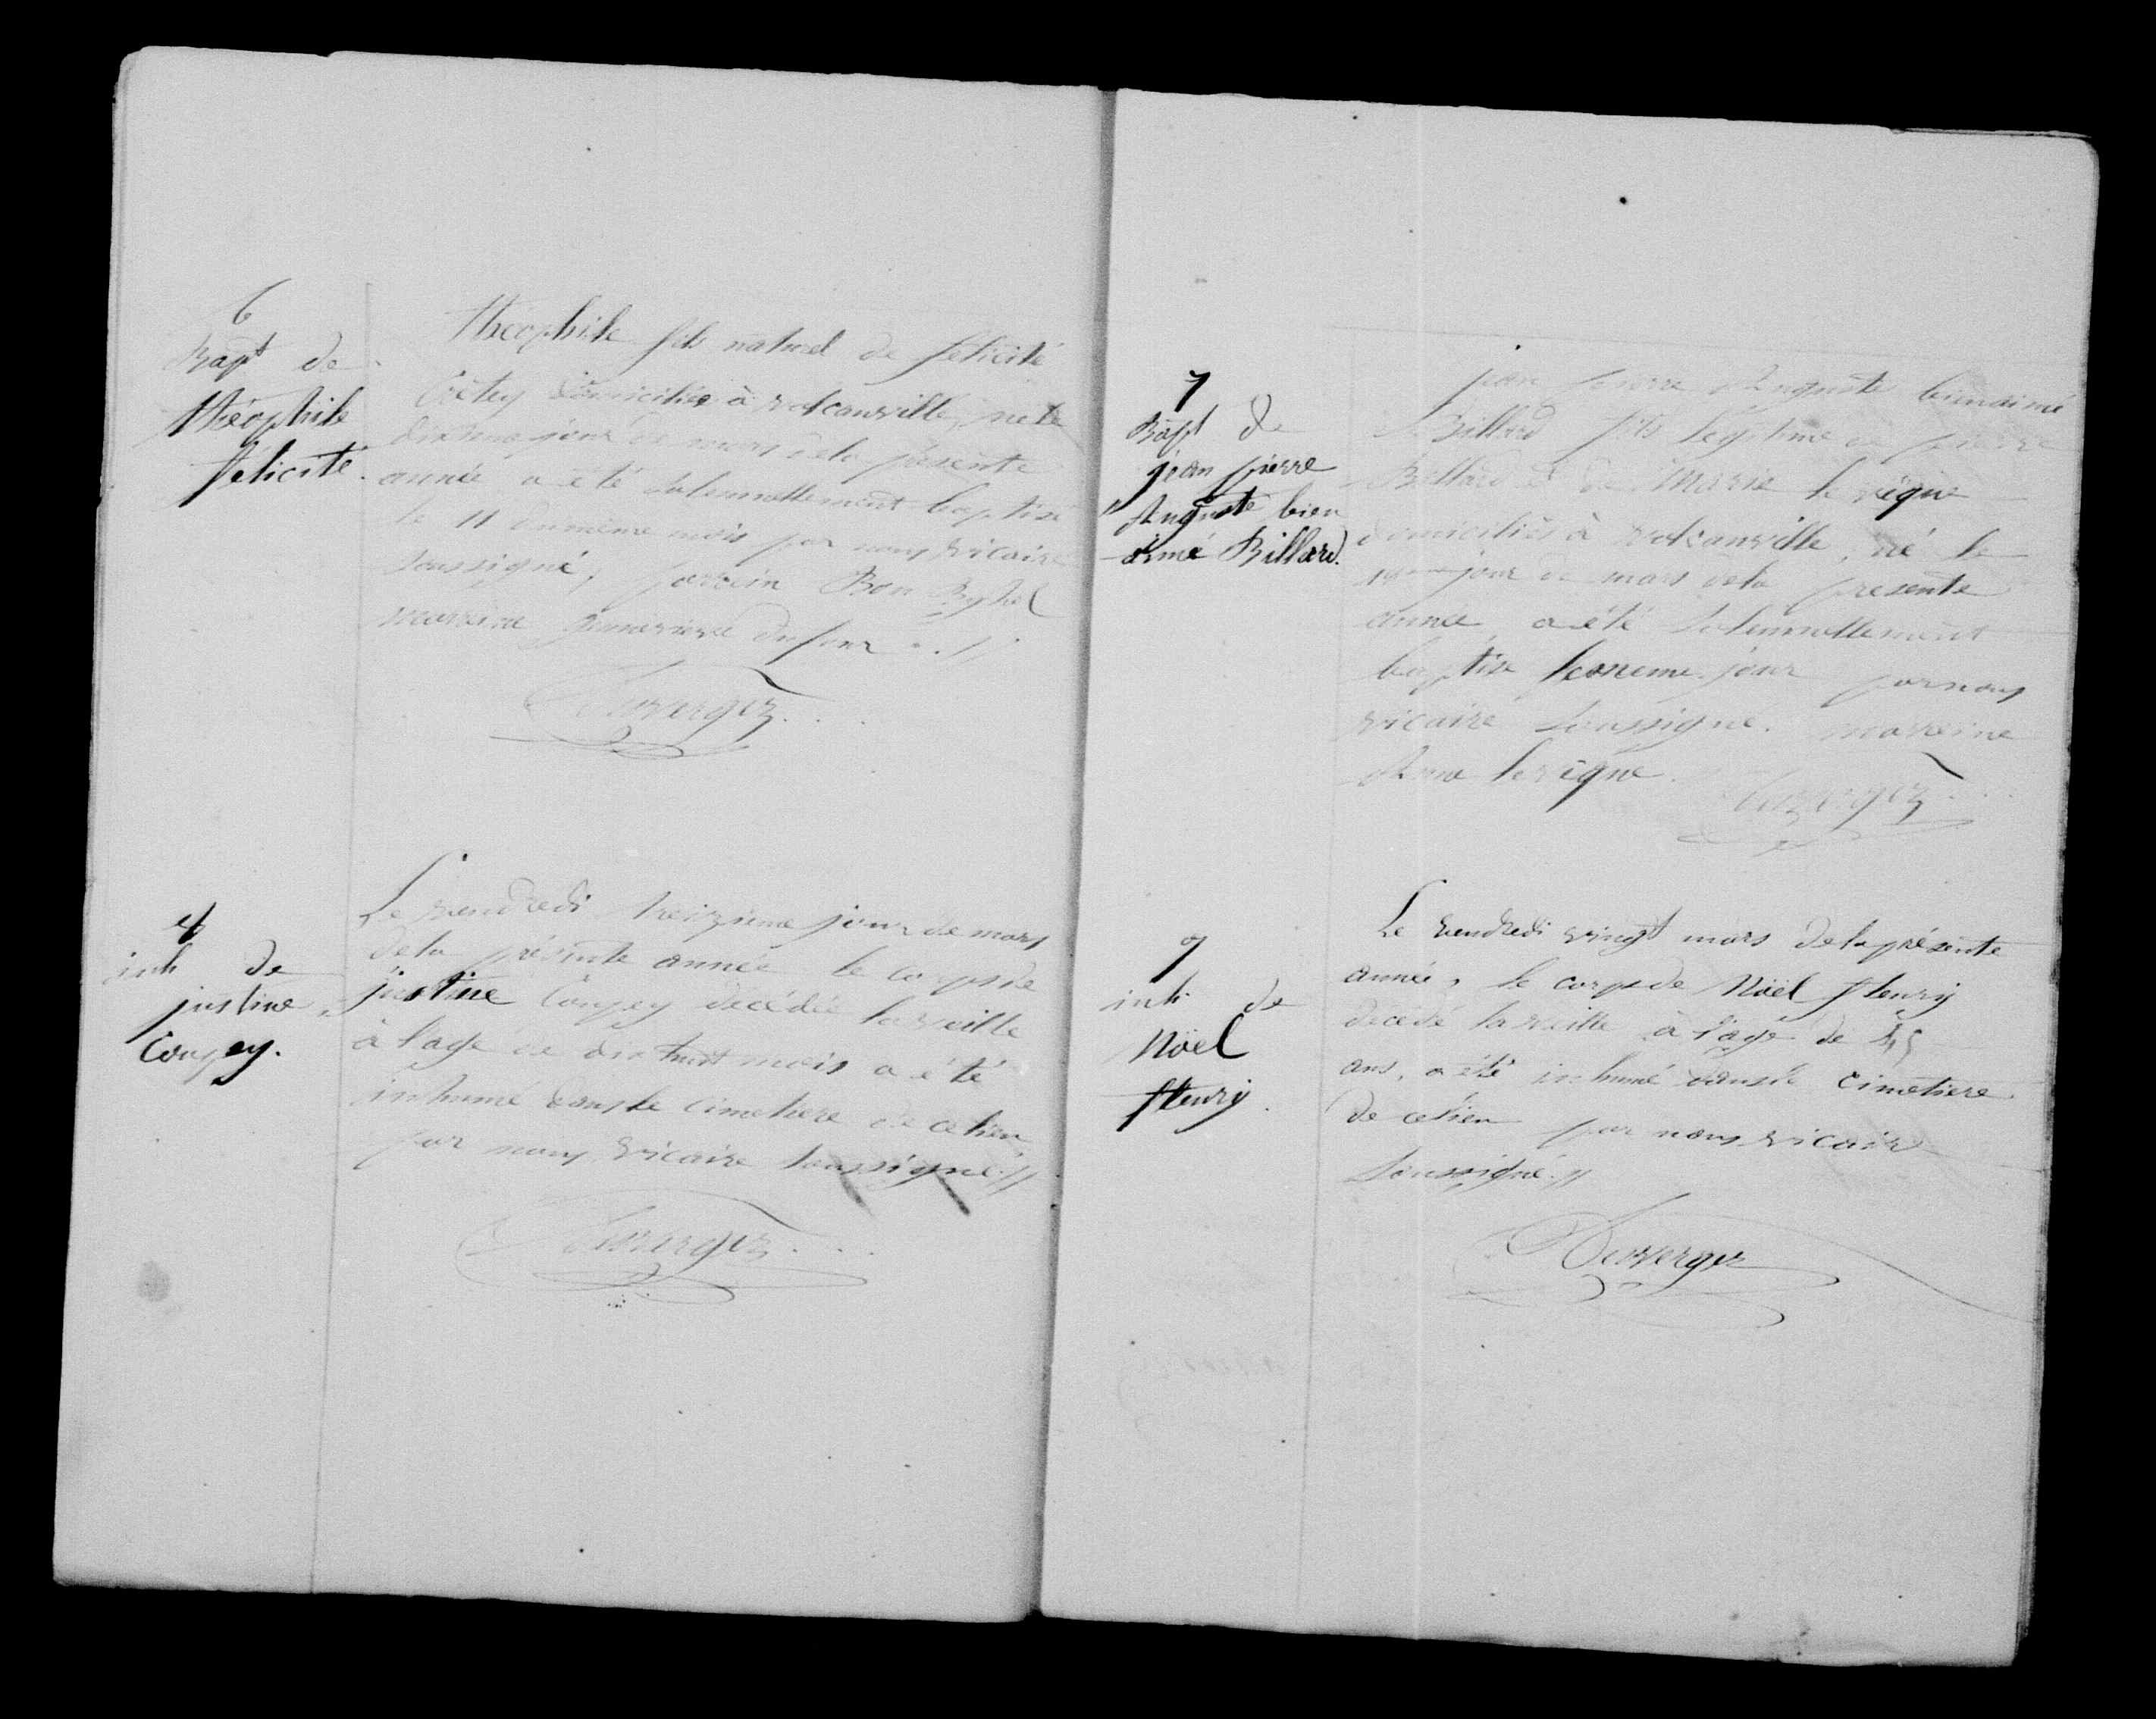 6
Bapt de
théophile
félicité.
théophile fils naturel de félicité
domiciliée à valcanville, né le
jour de mars de la présente
année a été solennellement baptisé
le 11 du même mois par nous vicaire
soussigné, parrein Bon
marreine dufour . //
Duverger
4
inh de
justine
Coupey.
Le vendredi treizieme jour de mars
de la présente année le corps de
justine Coupey décédée la veille
à l'age de dix huit mois a été
inhumé dans le cimetiere de ce lieu
par nous vicaire soussigné. //
Duverger
7
Bapt de
jean pierre
Auguste bien
aimé Billard.
jean pierre Auguste bienaimé
Billard fils légitime de pierre
Billard et de Marie le vigne
domiciliés à valcanville, né le
jour de mars de la presente
année a été solennellement
baptisé le meme jour par nous
vicaire soussigné. marreine
levigne.
Duverger
inh de
Nöel
fleury.
Le vendredi vingt mars de la présente
année, le corps de Nöel fleury
décédé la veille à l'age de 45
ans, a été inhumé dans le cimetiere
de ce lieu par nous vicaire
soussigné. //
Duverger